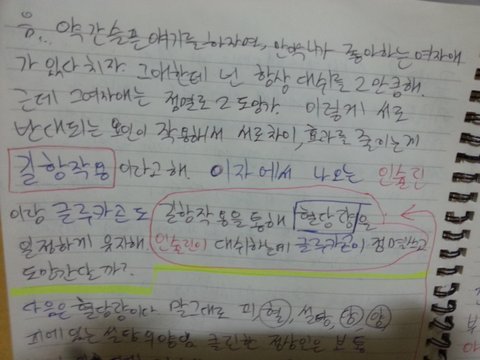 음... 약간 슬픈 얘기를 하자면, 만약 니가 좋아하는 여자애
가 있다 치자. 그애한테 넌 항상 대쉬를 2만큼해.
근데 그여자애는 점멸로 2 도망가. 이렇게 서로
반대되는 요인이 작용해서 서로차이, 효과를 줄이는게
길항작용 이라고 해. 이자에서 나오는 인슐린
이랑 글루카곤도 길항작용을 통해 혈당량을
일정하게 유지해. 인슐린이 대쉬하는데 글루카곤이 점멸쓰고
도망간달까?
다음은 혈당량이다 말그대로 피, 혈, 설탕, 당, 양
피에 있는 설탕의 양임 정상인은 보통